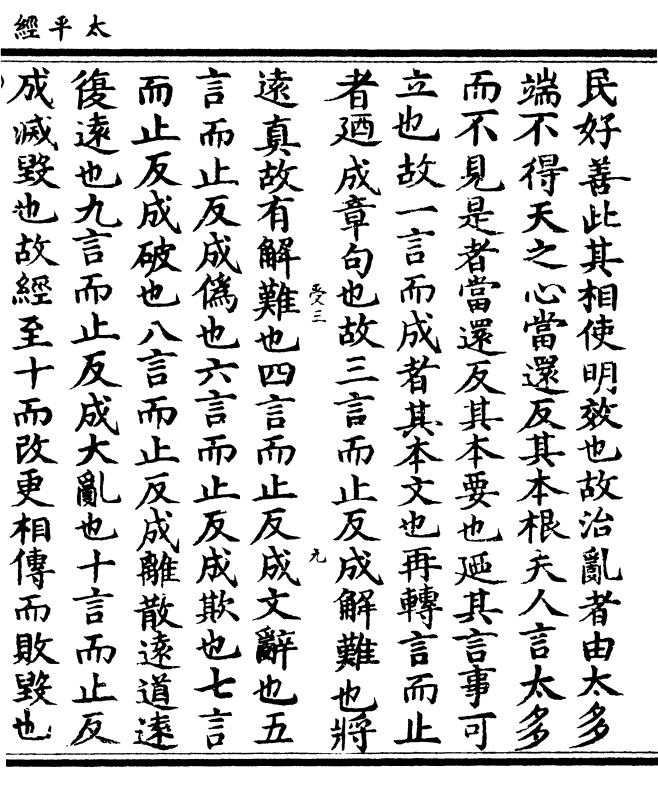 太平經
民好善此其相使明效也故治亂者由太多
端不得天之心當還反其本根夫人言太多
而不見是者當還反其本要也廼其言事可
立也故一言而成者其本文也再轉言而止
者廼成章句也故三言而止反成解難也將
受三
九
遠真故有解難也四言而止反成文辭也五
言而止反成僞也六言而止反成欺也七言
而止反成破也八言而止反成離散遠道遠
復遠也九言而止反成大亂也十言而止反
成滅毀也故經至十而改更相傳而敗毀也